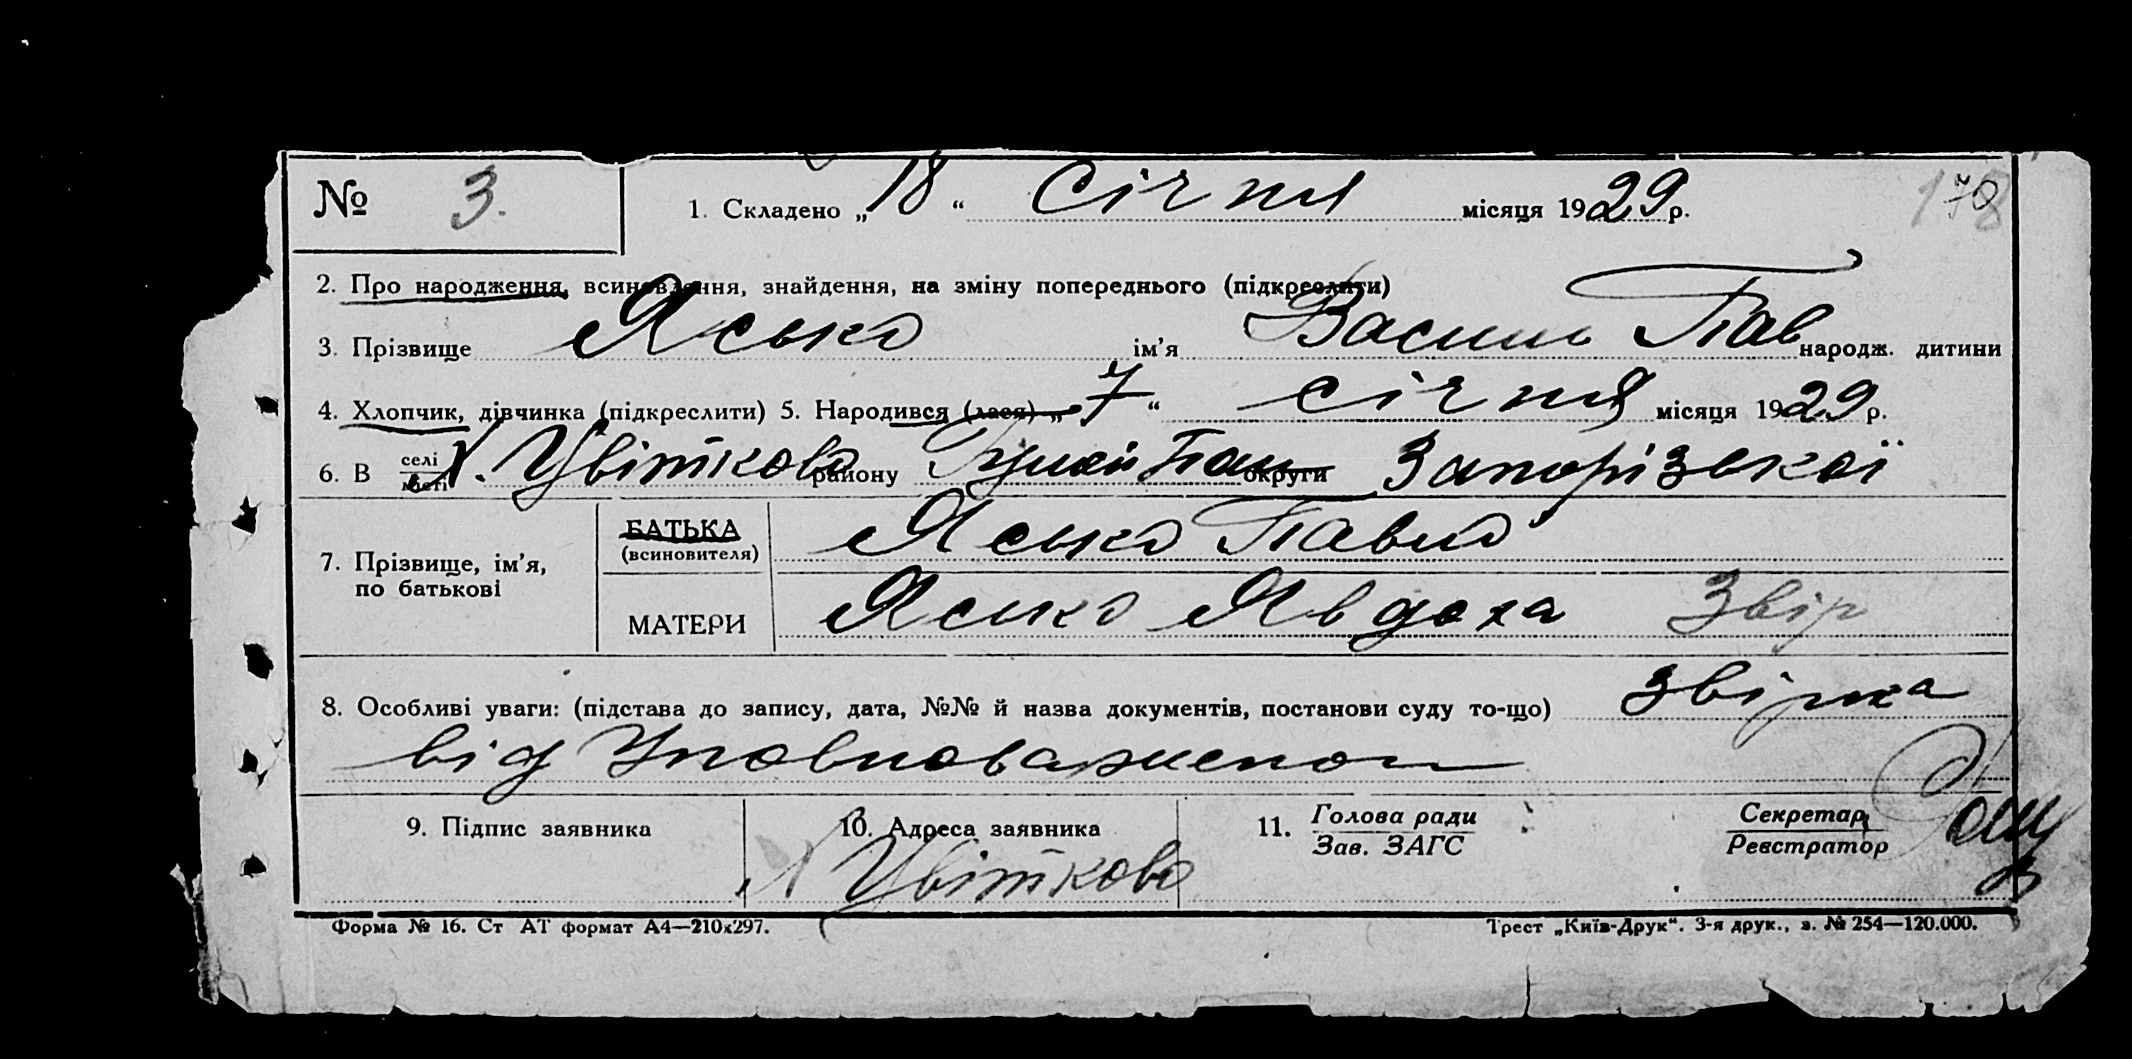 № 3. 1. Складено „18“ січня місяця 1929 р.
2. Про народження, всиновлення, знайдення, на зміну попереднього (підкреслити)
3. Прізвище Ясько ім'я Василь Пав народж. дитини
4. Хлопчик, дівчинка (підкреслити) 5. Народився (лася) „7“ січня місяця 1929 р.
6. В селі місті Х. Цвітково району округи Запорізської
7. Прізвище, ім'я, по батькові
БАТЬКА (всиновителя) Ясько Павло
МАТЕРИ Ясько Явдоха Звір
8. Особливі уваги: (підстава до запису, дата, №№ й назва документів, постанови суду то-що) Звірка
від Уповноваженого
9. Підпис заявника 10. Адреса заявника 11. Голова ради Зав. ЗАГС Секретар Реєстратор
Х Цвітково
Форма № 16. Ст АТ формат А4—210x297. Трест „Київ-Друк“. 3-я друк., з. № 254—120.000.